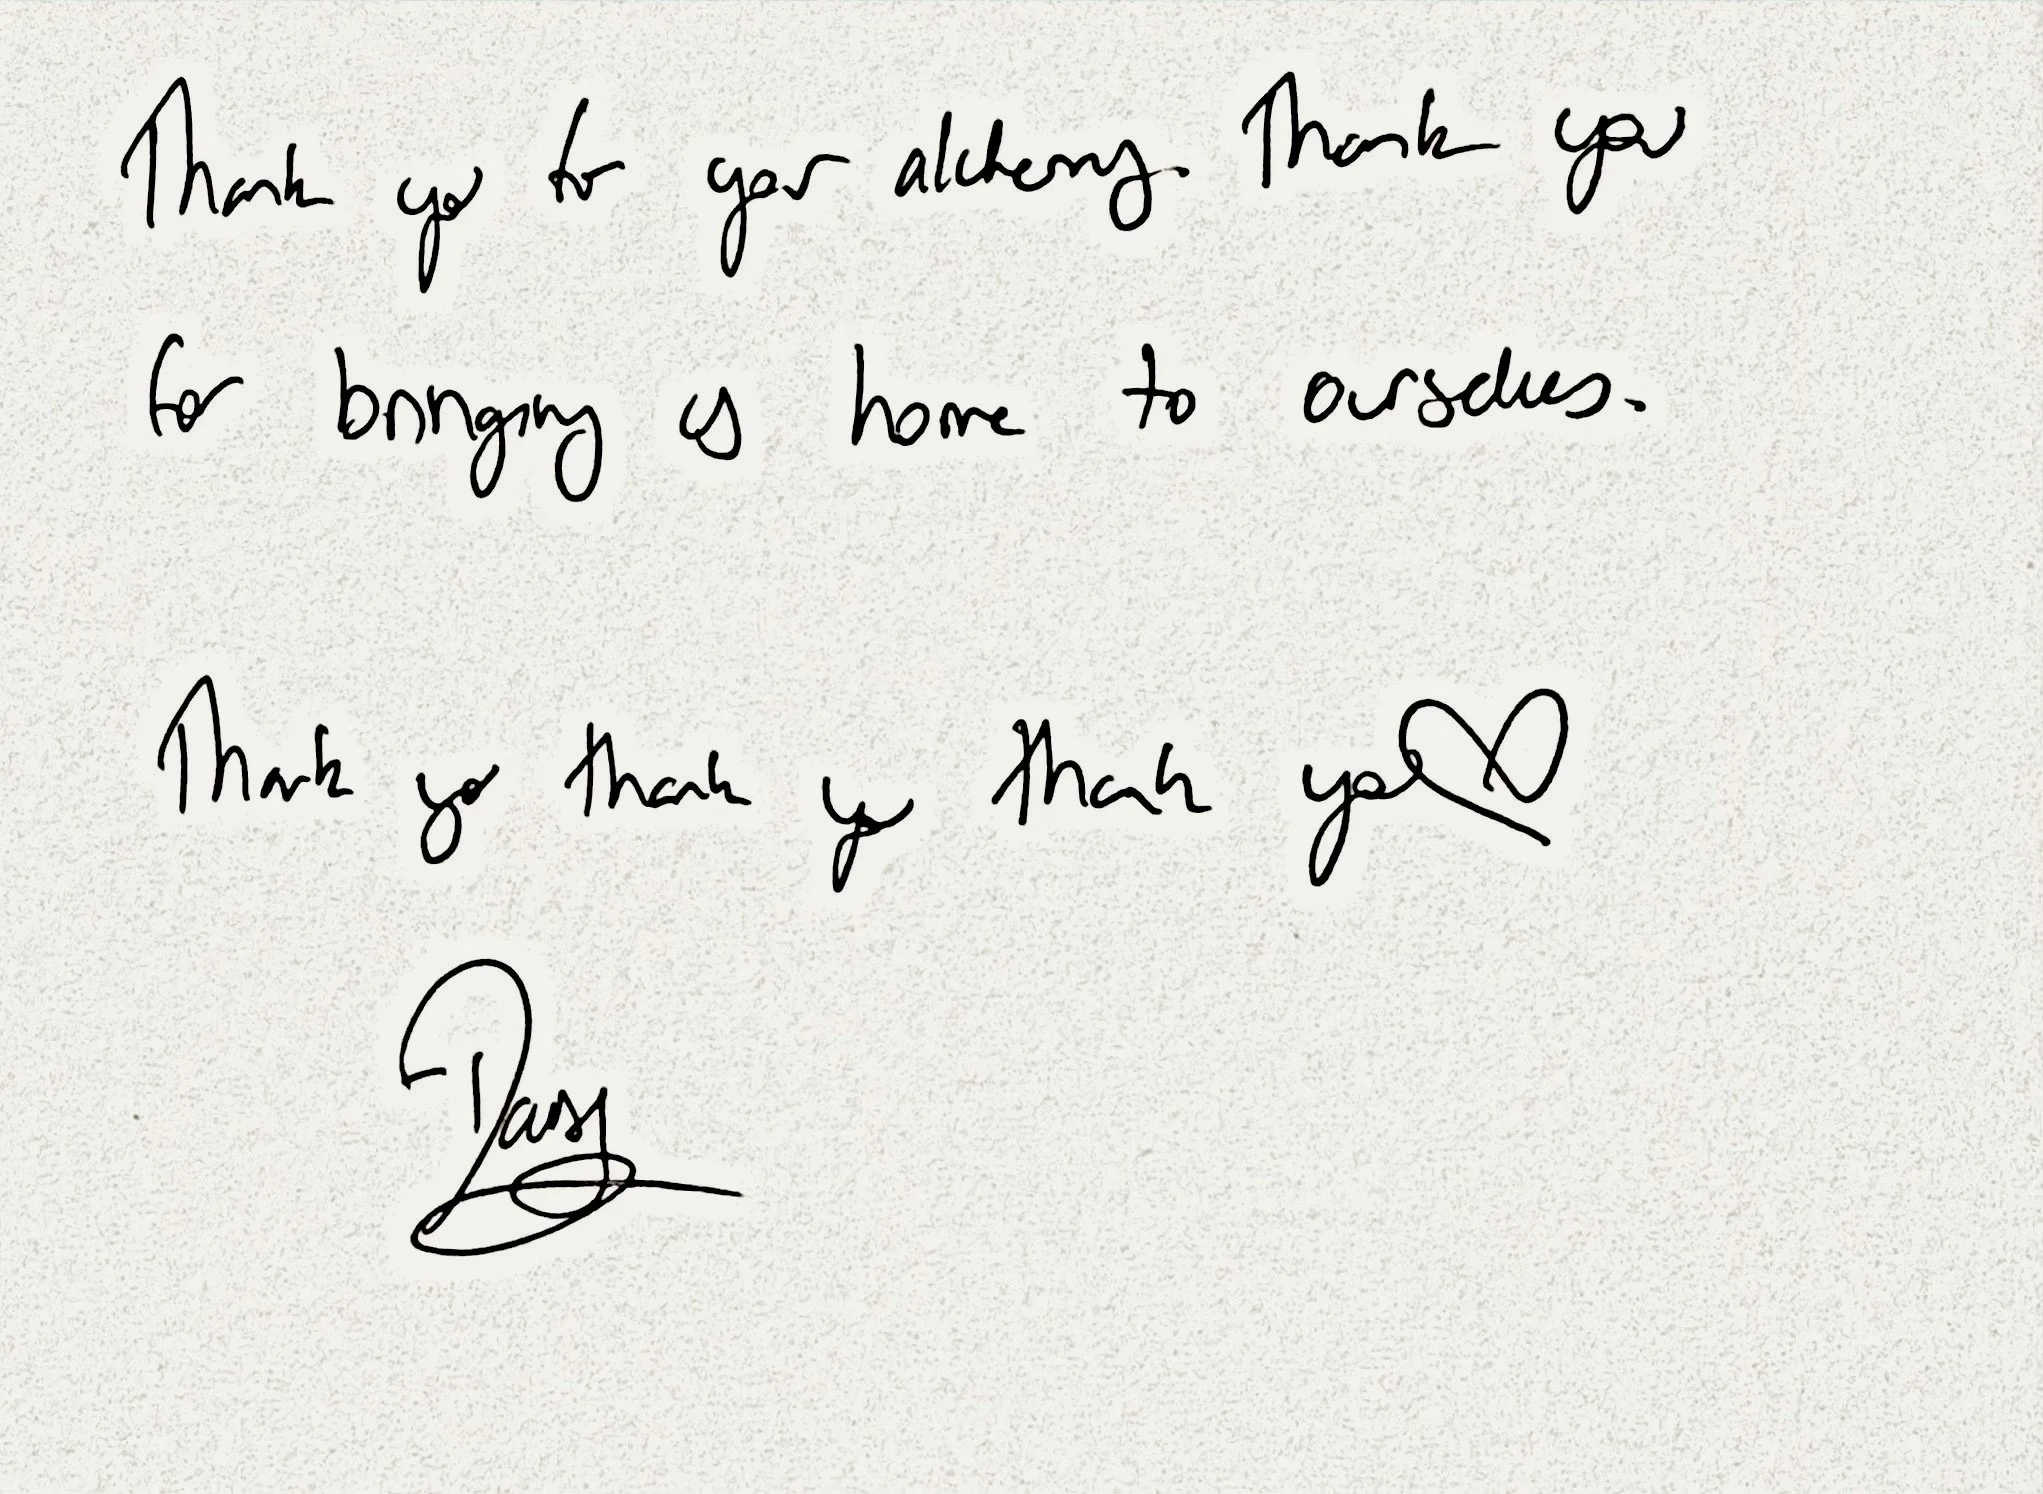 Thank you for your alchemy. Thank you
for bringing us home to ourselves.
Thank you thank you thank you
Daisy